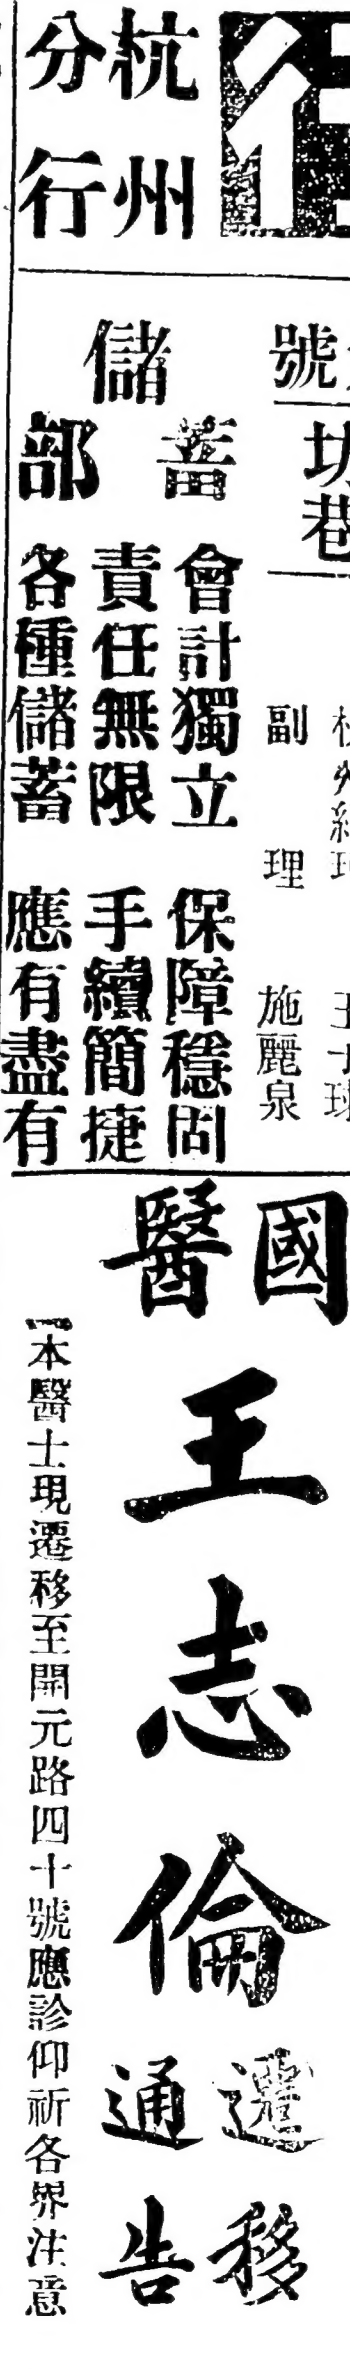 杭州
分行
號
坊巷
副理 施麗泉
儲蓄部
會計獨立 保障穩固
責任無限 手續簡捷
各種儲蓄 應有盡有
國醫
王志倫
遷移
通告
本醫士現遷移至開元路四十號應診仰祈各界注意